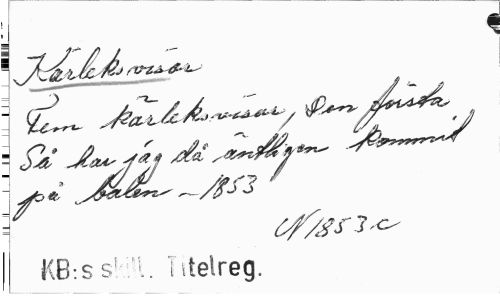 Kärleksvisor
Fem kärleksvisor, Den första
Så har jag då äntligen kommit
på balen – 1853
N 1853 c
KB:s skill. Titelreg.